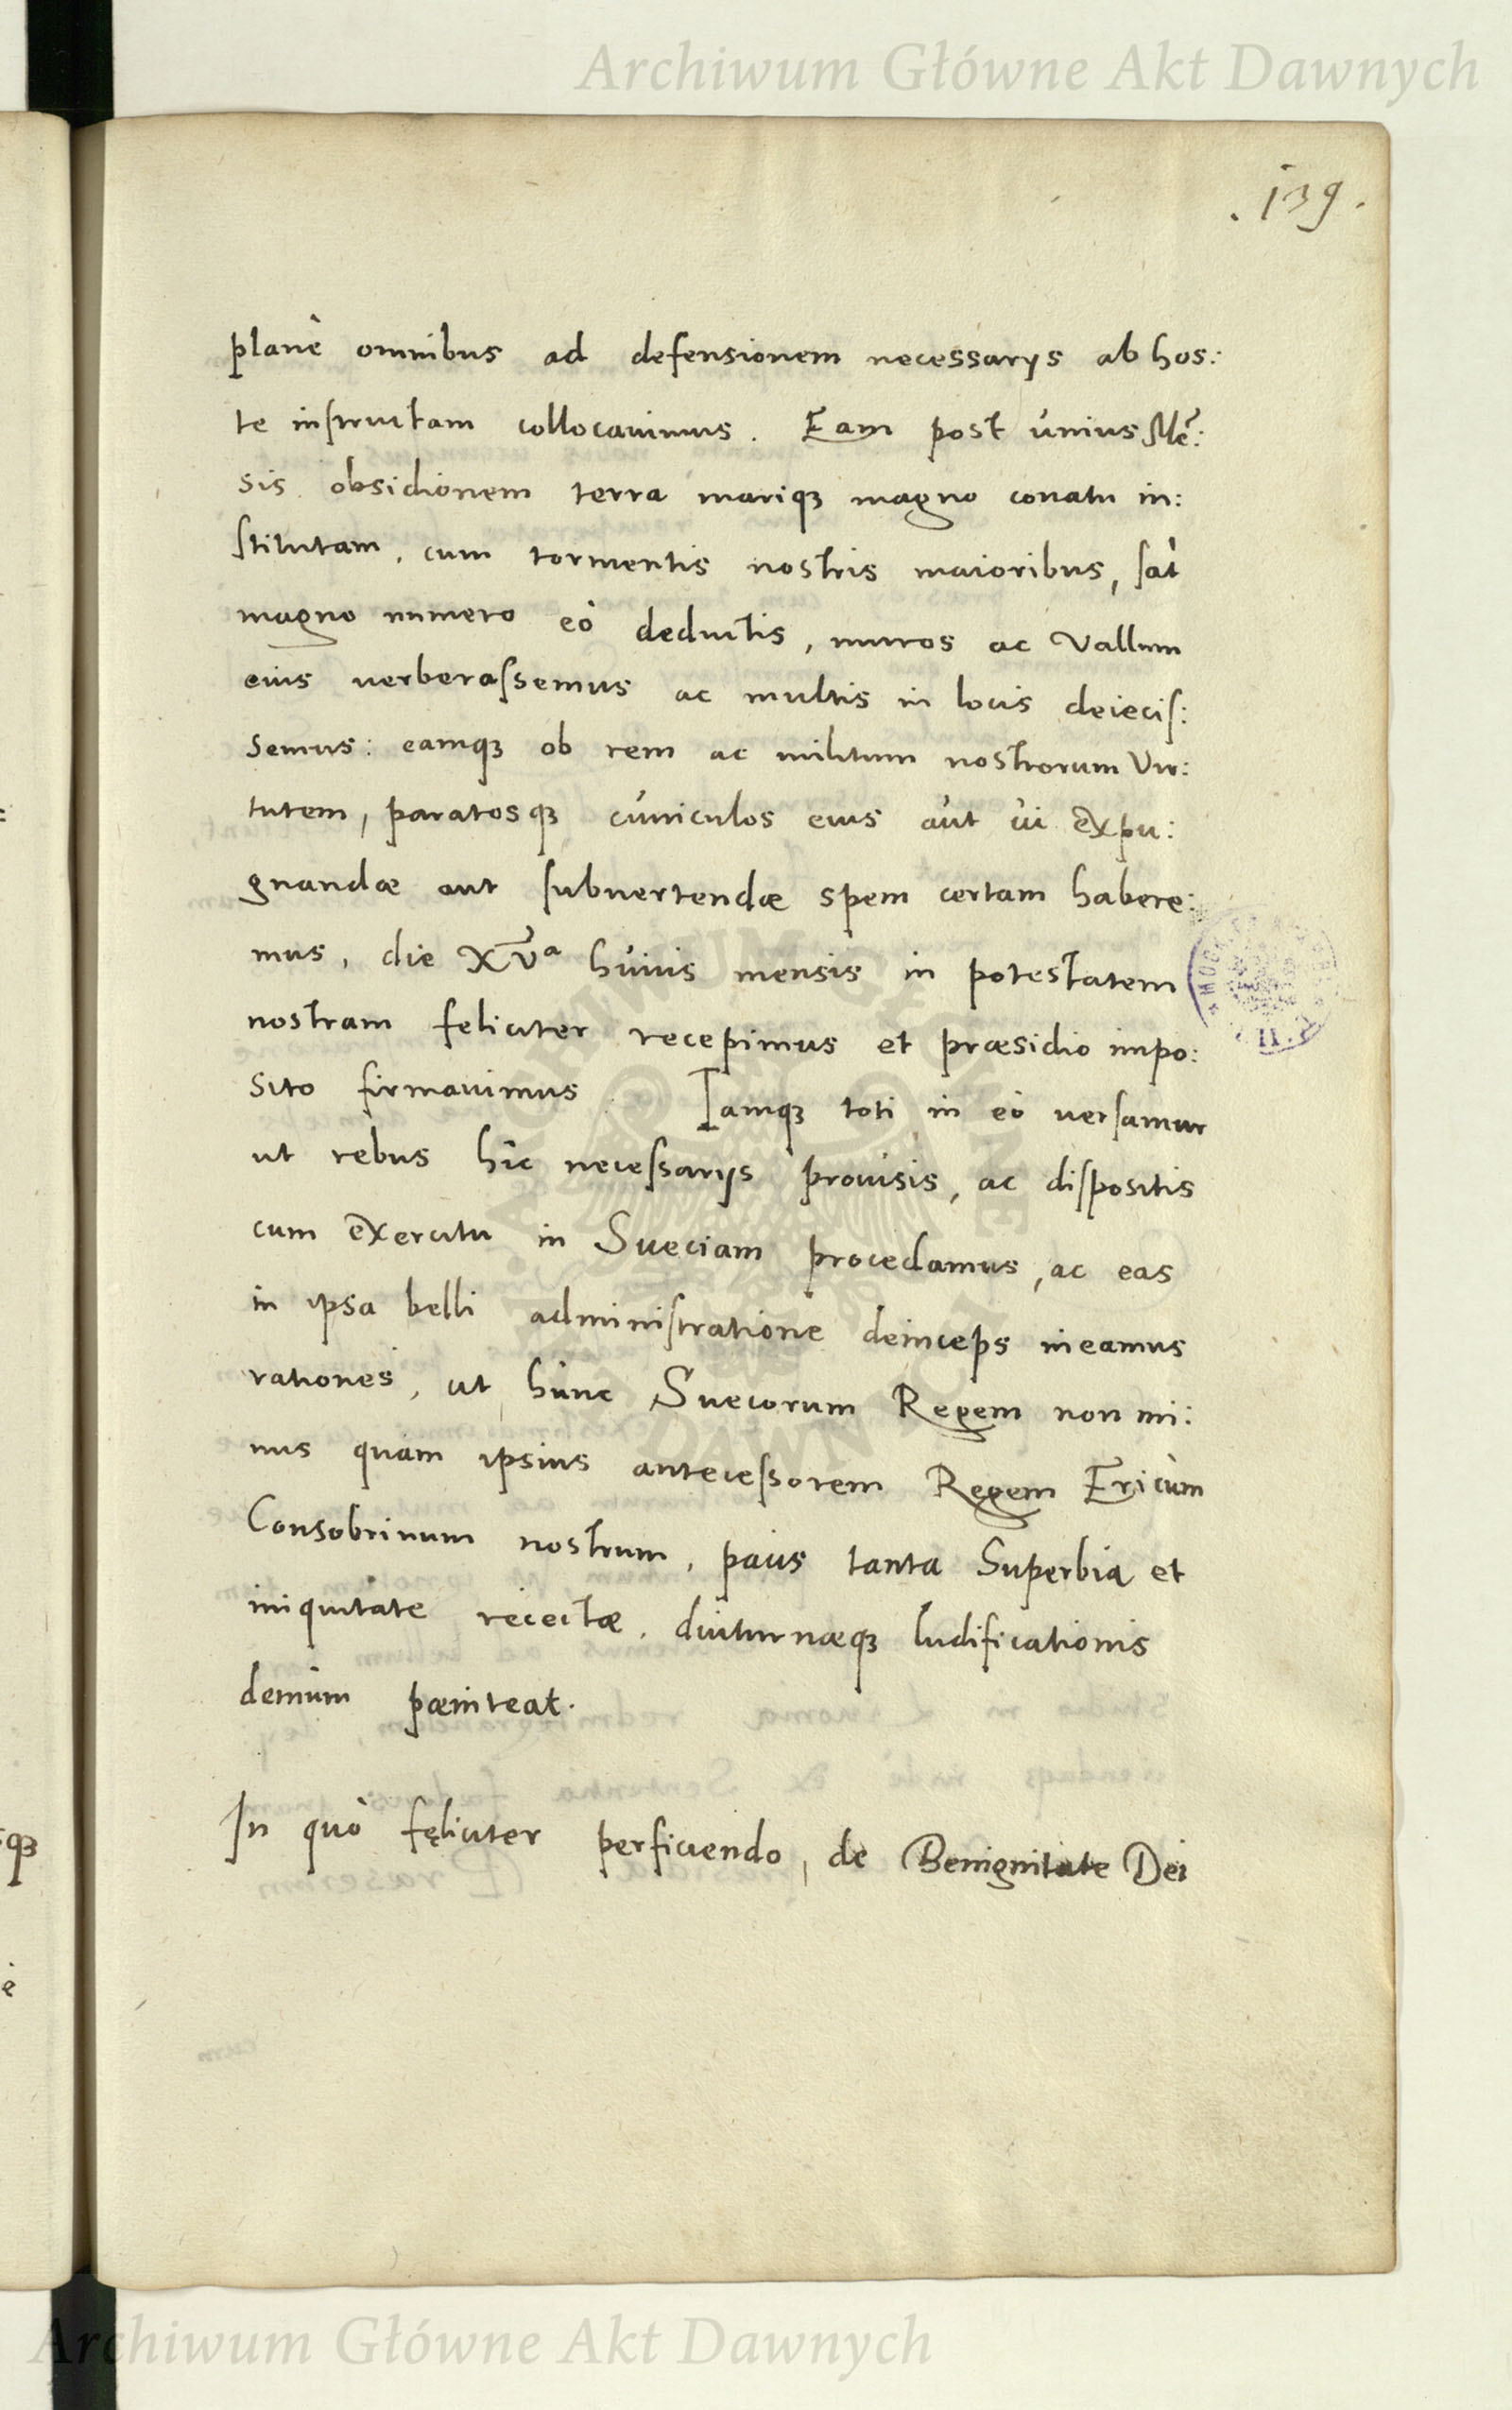 Archiwum Główne Akt Dawnych
. 139 .
planè omnibus ad defensionem necessarijs ab hos:
te instructam collocauimus. Eam post unius Mē:
sis obsidionem terra mariqꝫ magno conatu in:
stitutam, cum tormentis nostris maioribus, sat
magno numero eò deductis, muros ac Vallum
eius uerberassemus ac multis in locis deiecis:
semus: eamqꝫ ob rem ac militum nostrorum Vir:
tutem, paratosqꝫ cúniculos eius aút ùi expu:
gnandæ aut subuertendæ spem certam habere:
mus, die XVᵃ húius mensis in potestatem
nostram feliciter recepimus et præsidio impo:
sito firmauimus. Iamqꝫ toti in eò uersamur
ut rebus hîc necessarijs prouisis, ac dispositis
cum exercitu in Sueciam procedamus, ac eas
in ipsa belli administratione deinceps ineamus
rationes, ut húnc Suecorum Regem non mi:
nus quàm ipsius antecessorem Regem Ericùm
Consobrinum nostrum, pacis tanta Superbia et
iniquitate reiectæ, diuturnæqꝫ ludificationis
demùm pæniteat.
In quò fęliciter perficiendo, de Benignitate Dei
Archiwum Główne Akt Dawnych